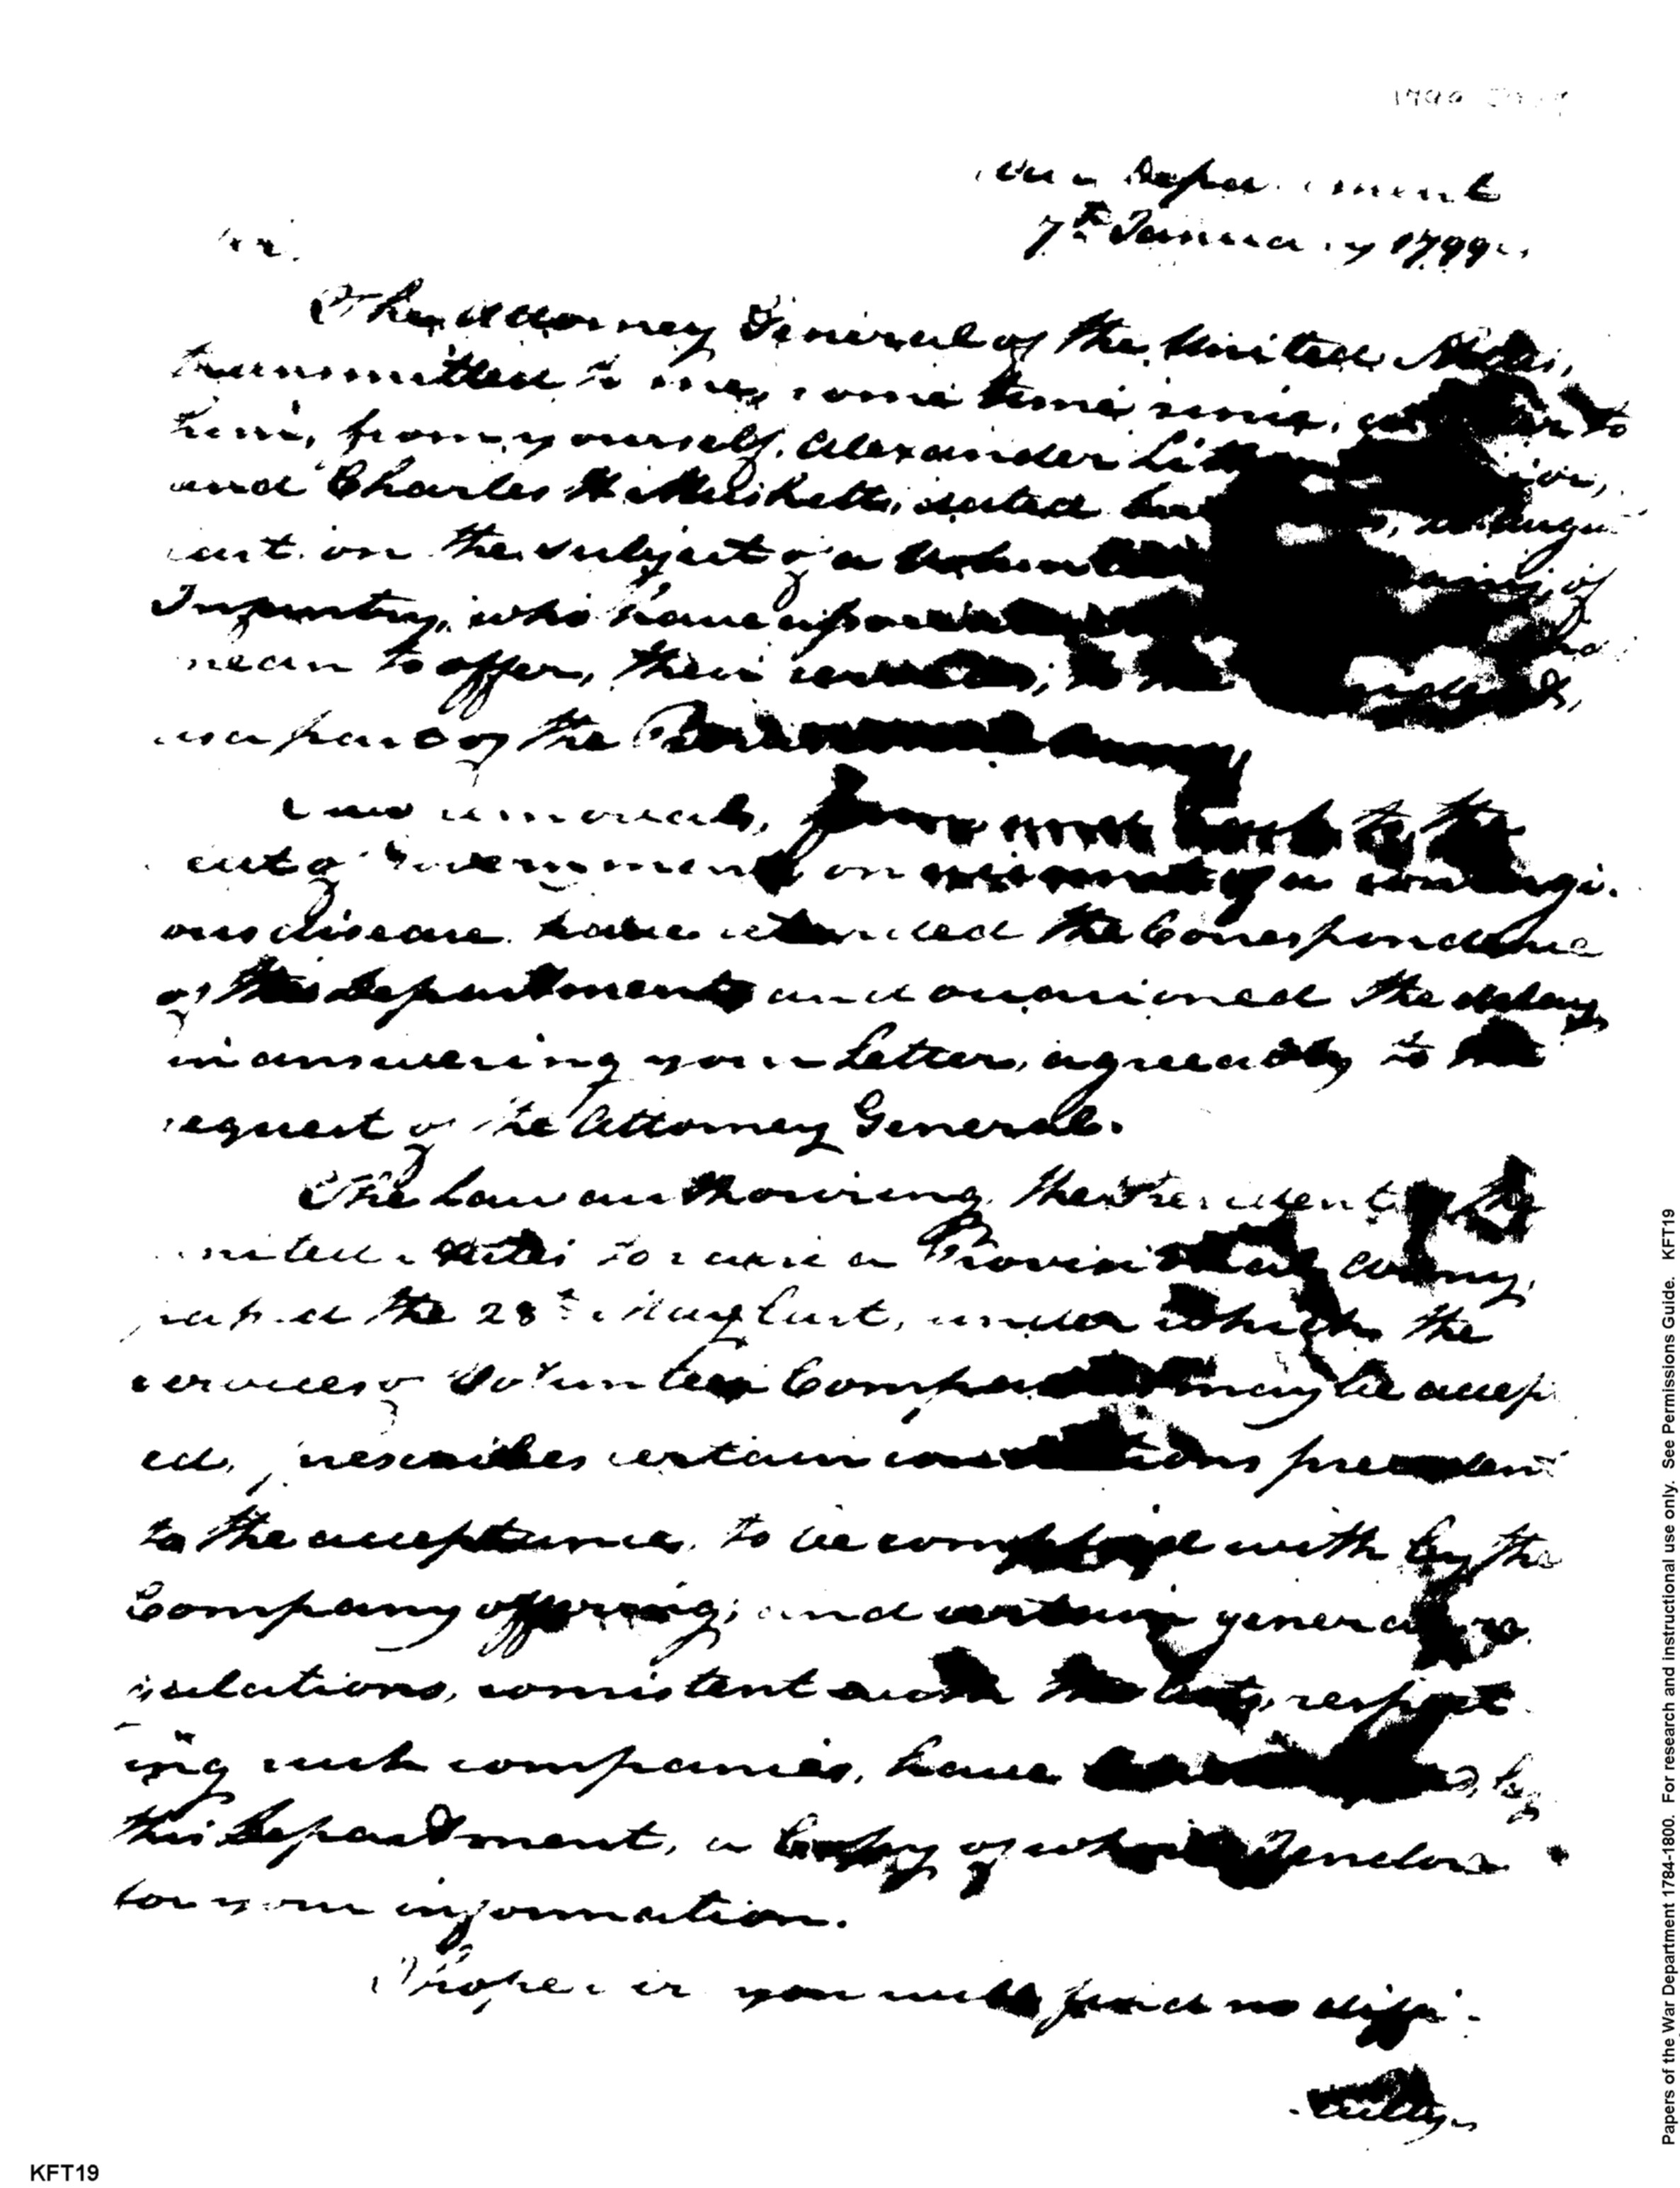 War Department
7th January 1799
Sir.
The Attorney General of the United States,
transmitted to me, some time since, a letter to
him, from yourself, Alexander
and Charles dated August
last on the subject of a Volunteer Company of
Infantry, who have or who
mean to offer, their services, to the President,
as a part of the Provisional Army
removals, from and back to the
seat of Government on account of a contagi-
ous disease have attended the Correspondence
of this Department and occasioned the delay
in answering your Letter, agreeably to the
request of the Attorney General.
The Law authorising the President of the
United States to raise a Provisional Army,
passed the 28th May last, under which the
services of Volunteer Companies may be accept
ed, prescribes certain conditions precedent
to the acceptance, to be complied with by the
Company offering; and certain general re
gulations, consistent with the Acts, respect
ing such companies, have by
this Department, a Copy of which I enclose
for your information.
I hope Sir you will find no diffi-
culty
KFT19
Papers of the War Department 1784-1800. For research and instructional use only. See Permissions Guide. KFT19